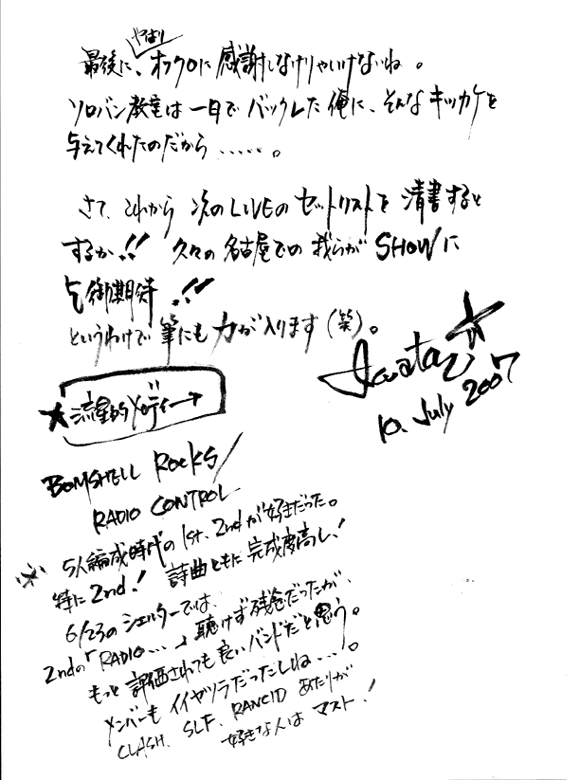 最後に、やはりオフクロに感謝しなけりゃいけないね。
ソロバン教室は一日でバックレた俺に、そんなキッカケを
与えてくれたのだから‥‥‥。
さて、これから次のLIVEのセットリストを清書すると
するか!! 久々の名古屋での我らがSHOWに
乞御期待!!
というわけで筆にも力が入ります(笑)。
10. July 2007
★流星的メロディー→
BOMSHELL ROCKS/
RADIO CONTROL
※ 5人編成時代の1st、2ndが好きだった。
特に2nd! 詩曲ともに完成度高し!
6/23のシェルターでは、
2ndの「RADIO…」聴けず残念だったが、
もっと評価されても良いバンドだと思う。
メンバーもイイヤツラだったしね…。
CLASH、SLF、RANCIDあたりが
好きな人はマスト!